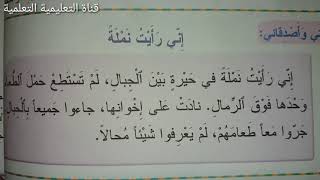 قناة التعليمية التعلمية
ني وأصدقائي:
إِنّي رَأَيْتُ نَمْلَةً
إِنّي رَأَيْتُ نَمْلَةً في حَيْرَةٍ بَيْنَ الْجِبالِ، لَمْ تَسْتَطِعْ حَمْلَ الطَّعا
وَحْدَها فَوْقَ الرِّمالِ. نادَتْ عَلى إِخْوانِها، جاءوا جَميعاً بِالْحِبالِ
جَرّوا مَعاً طَعامَهُمْ، لَمْ يَعْرِفوا شَيْئاً مُحالاً.